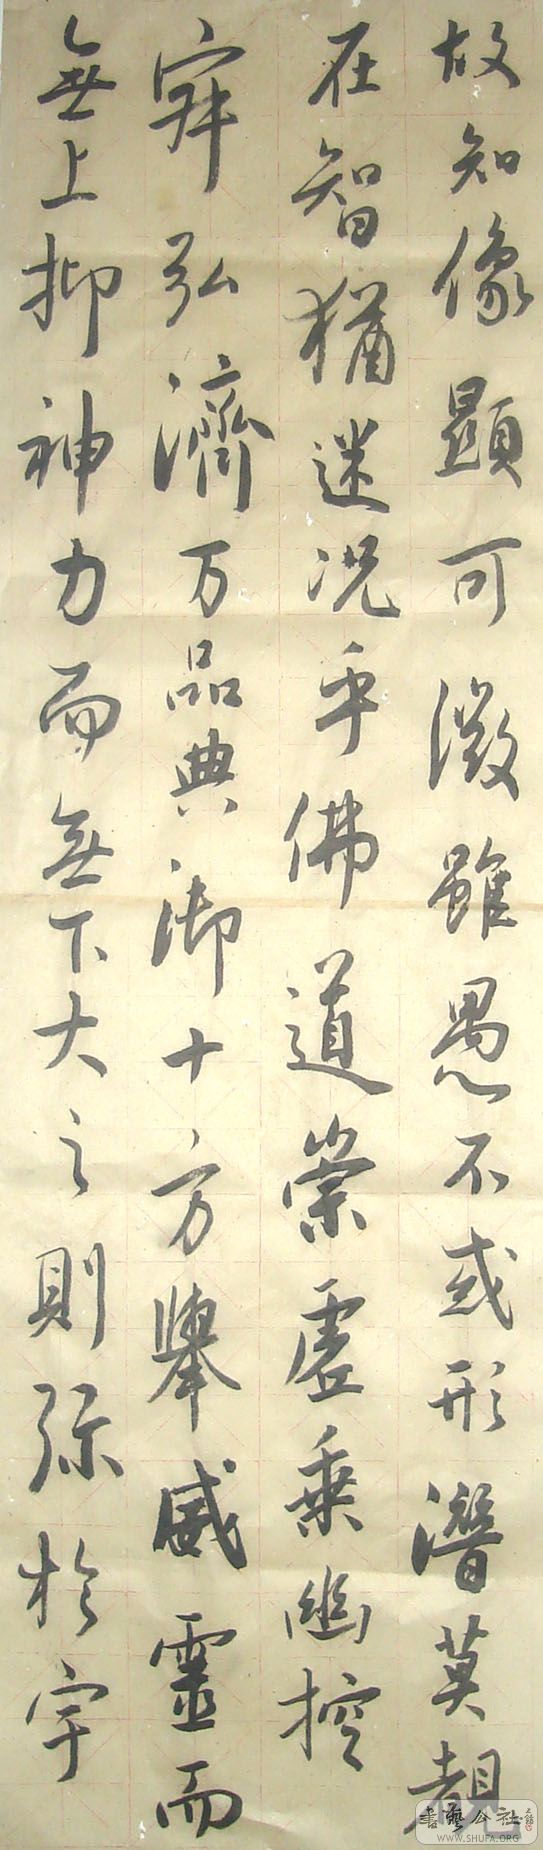 故知像顯可徵雖愚不惑形潛莫覩
在智猶迷况乎佛道崇虛乗幽控
寂弘濟万品典御十方舉威靈而
無上抑神力而無下大之則彌於宇
書藝公社
WWW.SHUFA.ORG